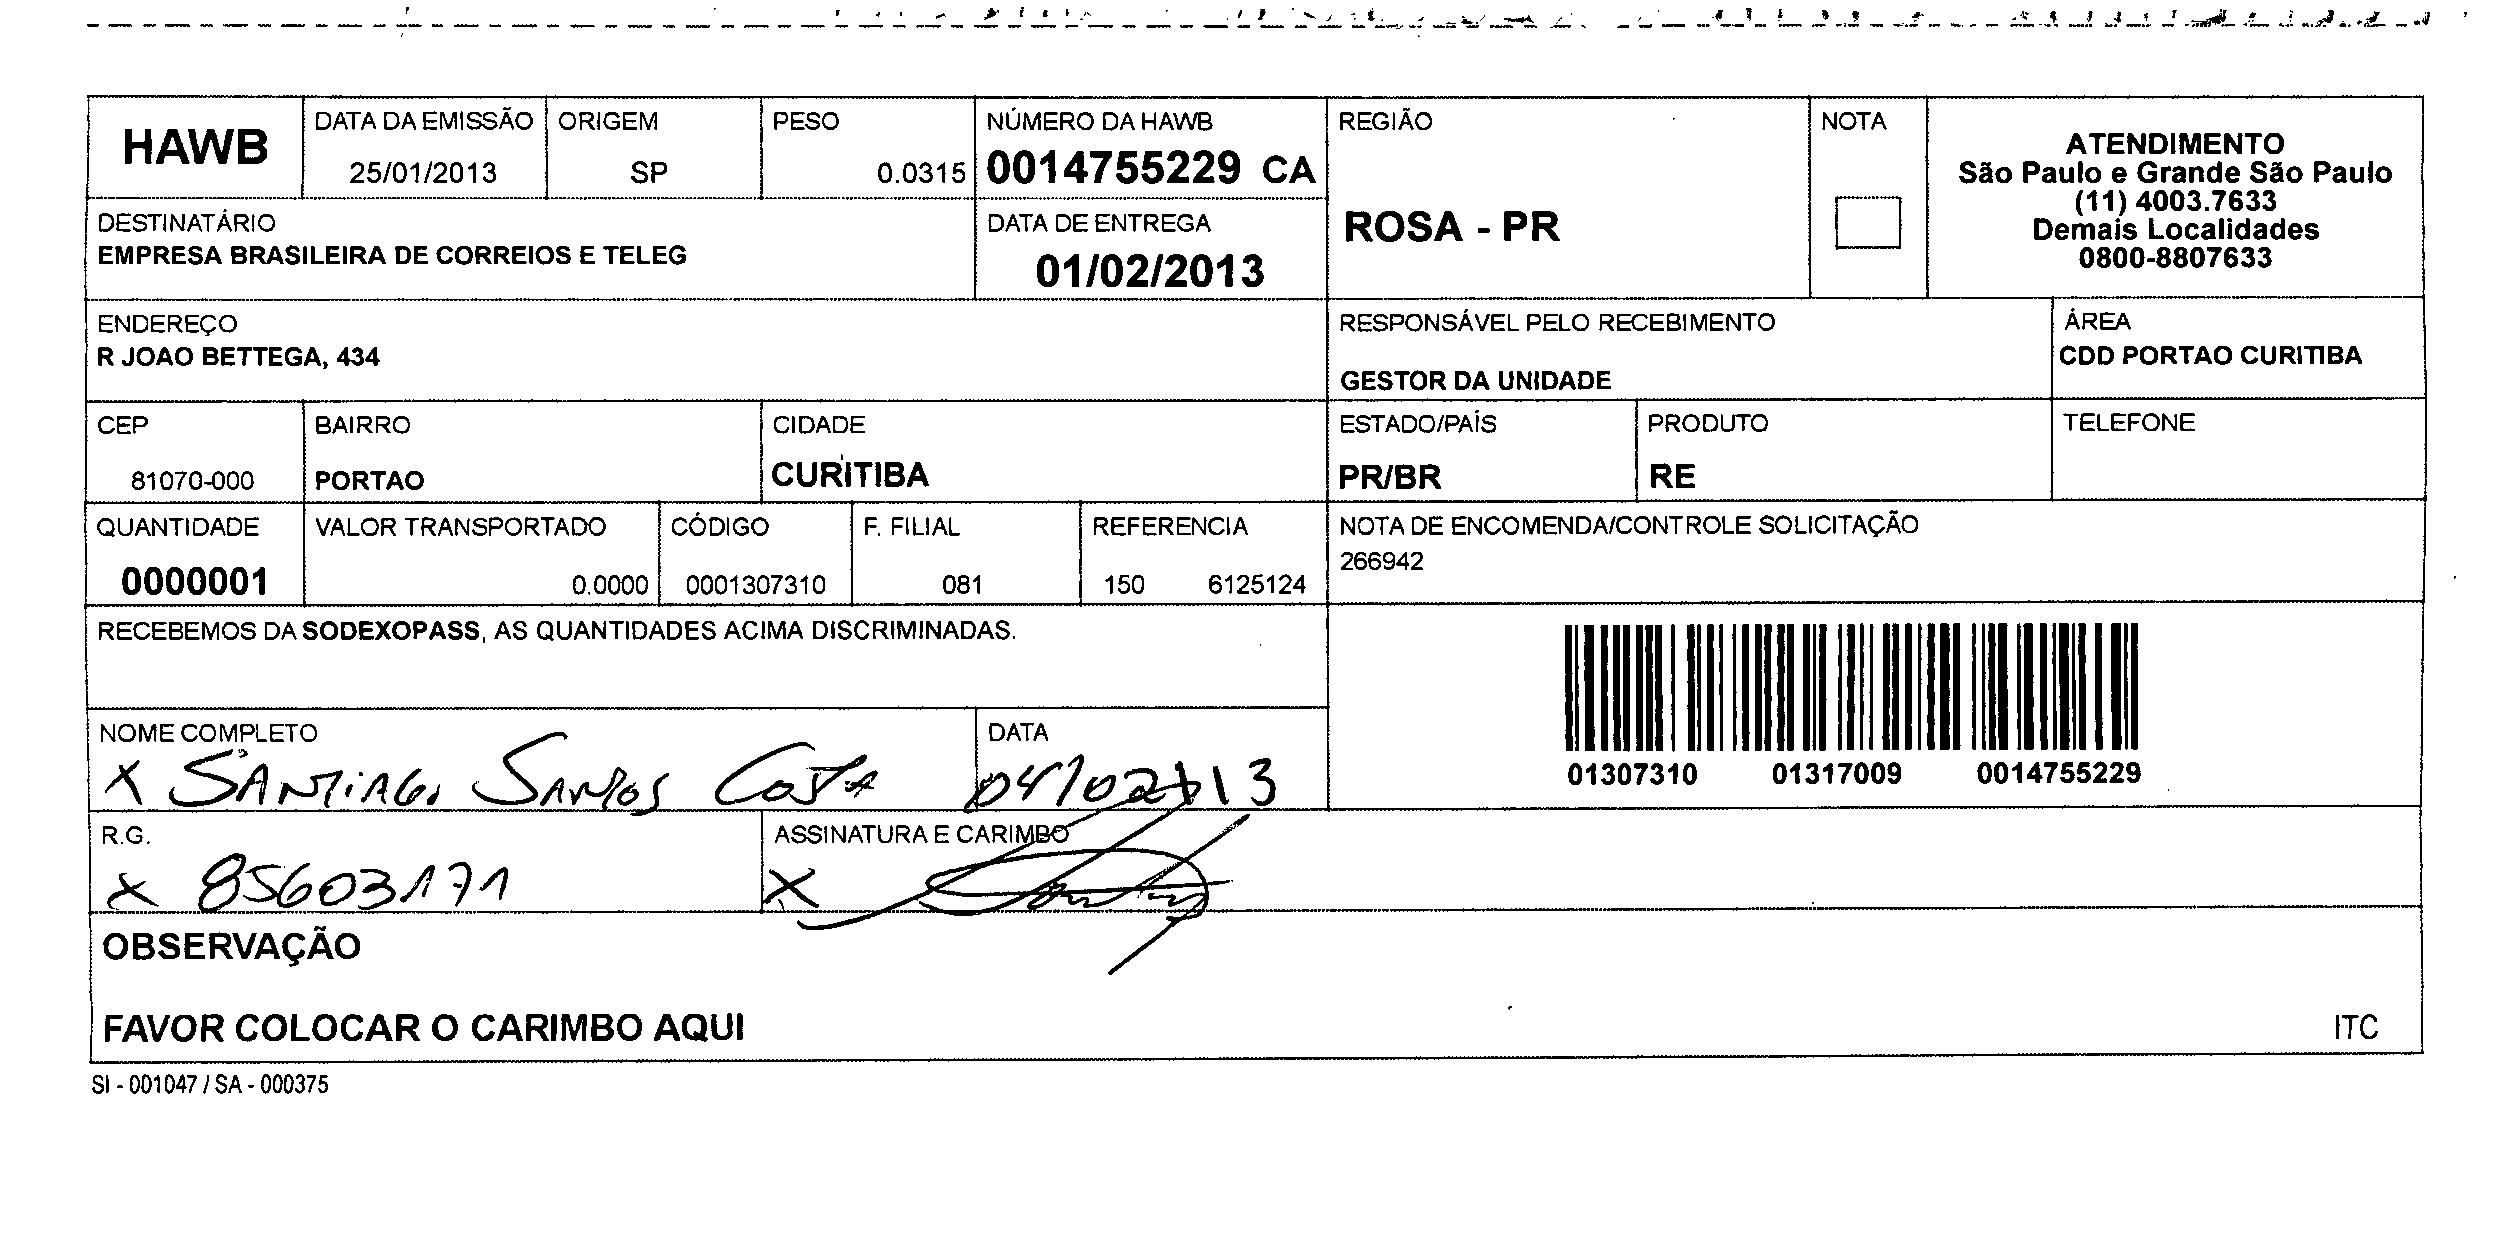 HAWB
DATA DA EMISSÃO
25/01/2013
ORIGEM
SP
PESO
0.0315
NÚMERO DA HAWB
0014755229 CA
REGIÃO
ROSA - PR
NOTA
ATENDIMENTO
São Paulo e Grande São Paulo
(11) 4003.7633
Demais Localidades
0800-8807633
DESTINATÁRIO
EMPRESA BRASILEIRA DE CORREIOS E TELEG
DATA DE ENTREGA
01/02/2013
ENDEREÇO
R JOAO BETTEGA, 434
RESPONSÁVEL PELO RECEBIMENTO
GESTOR DA UNIDADE
ÁREA
CDD PORTAO CURITIBA
CEP
81070-000
BAIRRO
PORTAO
CIDADE
CURITIBA
ESTADO/PAÍS
PR/BR
PRODUTO
RE
TELEFONE
QUANTIDADE
0000001
VALOR TRANSPORTADO
0.0000
CÓDIGO
0001307310
F. FILIAL
081
REFERENCIA
150 6125124
NOTA DE ENCOMENDA/CONTROLE SOLICITAÇÃO
266942
RECEBEMOS DA SODEXOPASS, AS QUANTIDADES ACIMA DISCRIMINADAS.
01307310 01317009 0014755229
NOME COMPLETO
X SANTIAGO SANTOS COSTA
DATA
04/02/13
R.G.
X 85603171
ASSINATURA E CARIMBO
X
OBSERVAÇÃO
FAVOR COLOCAR O CARIMBO AQUI
ITC
SI - 001047 / SA - 000375